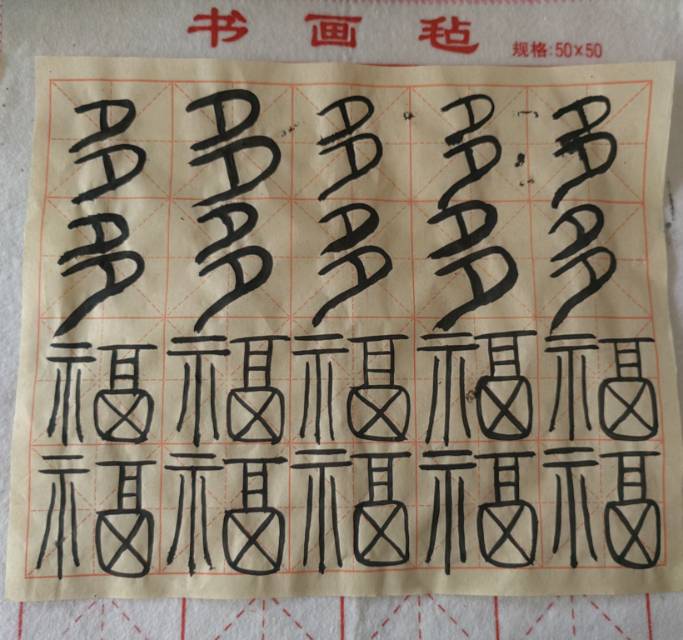 书画毡 规格:50×50
多多多多多
多多多多多
福福福福福
福福福福福